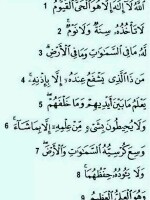 اللَّهُ لَا إِلَٰهَ إِلَّا هُوَ الْحَيُّ الْقَيُّومُ ۚ 1
لَا تَأْخُذُهُ سِنَةٌ وَلَا نَوْمٌ ۚ 2
لَهُ مَا فِي السَّمَاوَاتِ وَمَا فِي الْأَرْضِ ۗ 3
مَنْ ذَا الَّذِي يَشْفَعُ عِنْدَهُ إِلَّا بِإِذْنِهِ ۚ 4
يَعْلَمُ مَا بَيْنَ أَيْدِيهِمْ وَمَا خَلْفَهُمْ ۖ 5
وَلَا يُحِيطُونَ بِشَيْءٍ مِنْ عِلْمِهِ إِلَّا بِمَا شَاءَ ۚ 6
وَسِعَ كُرْسِيُّهُ السَّمَاوَاتِ وَالْأَرْضَ ۖ 7
وَلَا يَئُودُهُ حِفْظُهُمَا ۚ 8
وَهُوَ الْعَلِيُّ الْعَظِيمُ 9